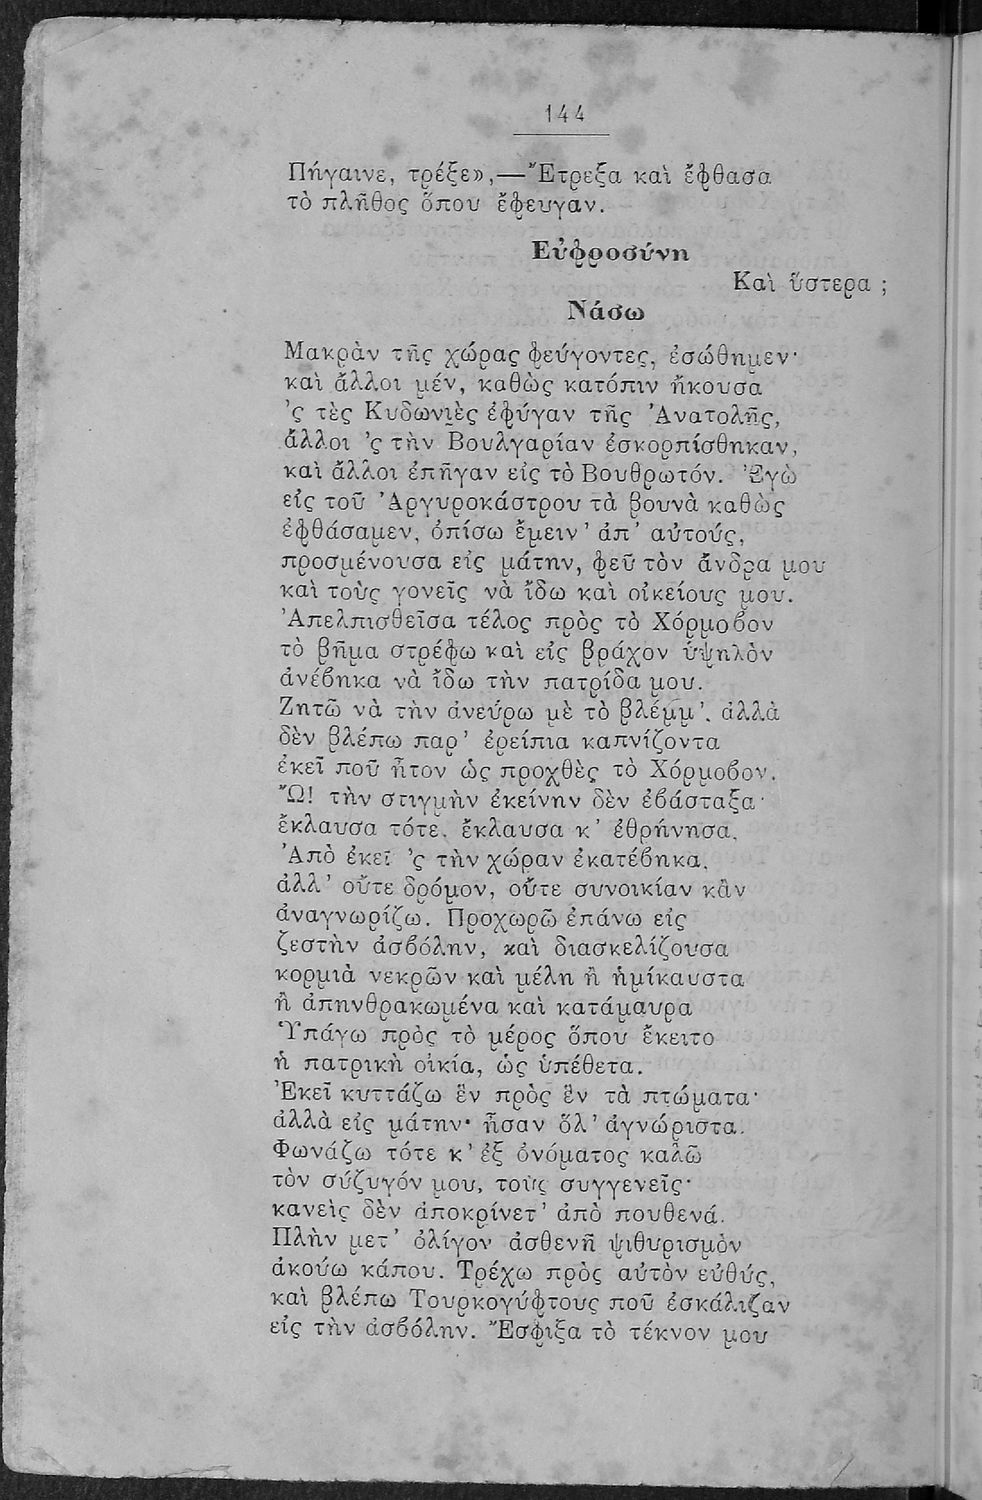 144
Πήγαινε, τρέξε»,—Ἔτρεξα καὶ ἔφθασα
τὸ πλῆθος ὅπου ἔφευγαν.
Εὐφροσύνη
Καὶ ὕστερα ;
Νάσω
Μακρὰν τῆς χώρας φεύγοντες, ἐσώθημεν·
καὶ ἄλλοι μέν, καθὼς κατόπιν ἤκουσα
'ς τὲς Κυδωνιὲς ἐφύγαν τῆς Ἀνατολῆς,
ἄλλοι 'ς τὴν Βουλγαρίαν ἐσκορπίσθηκαν,
καὶ ἄλλοι ἐπῆγαν εἰς τὸ Βουθρωτόν. Ἐγὼ
εἰς τοῦ Ἀργυροκάστρου τὰ βουνὰ καθὼς
ἐφθάσαμεν, ὀπίσω ἔμειν' ἀπ' αὐτούς,
προσμένουσα εἰς μάτην, φεῦ τὸν ἄνδρα μου
καὶ τοὺς γονεῖς νὰ ἴδω καὶ οἰκείους μου.
Ἀπελπισθεῖσα τέλος πρὸς τὸ Χόρμοβον
τὸ βῆμα στρέφω καὶ εἰς βράχον ὑψηλὸν
ἀνέβηκα νὰ ἴδω τὴν πατρίδα μου.
Ζητῶ νὰ τὴν ἀνεύρω μὲ τὸ βλέμμ', ἀλλὰ
δὲν βλέπω παρ' ἐρείπια καπνίζοντα
ἐκεῖ ποῦ ἦτον ὡς προχθὲς τὸ Χόρμοβον.
Ὤ! τὴν στιγμὴν ἐκείνην δὲν ἐβάσταξα·
ἔκλαυσα τότε, ἔκλαυσα κ' ἐθρήνησα.
Ἀπὸ ἐκεῖ 'ς τὴν χώραν ἐκατέβηκα,
ἀλλ' οὔτε δρόμον, οὔτε συνοικίαν κἂν
ἀναγνωρίζω. Προχωρῶ ἐπάνω εἰς
ζεστὴν ἀσβόλην, καὶ διασκελίζουσα
κορμιὰ νεκρῶν καὶ μέλη ἢ ἡμίκαυστα
ἢ ἀπηνθρακωμένα καὶ κατάμαυρα
Ὑπάγω πρὸς τὸ μέρος ὅπου ἔκειτο
ἡ πατρικὴ οἰκία, ὡς ὑπέθετα.
Ἐκεῖ κυττάζω ἓν πρὸς ἓν τὰ πτώματα·
ἀλλὰ εἰς μάτην· ἦσαν ὅλ' ἀγνώριστα.
Φωνάζω τότε κ' ἐξ ὀνόματος καλῶ
τὸν σύζυγόν μου, τοὺς συγγενεῖς·
κανεὶς δὲν ἀποκρίνετ' ἀπὸ πουθενά.
Πλὴν μετ' ὀλίγον ἀσθενῆ ψιθυρισμὸν
ἀκούω κάπου. Τρέχω πρὸς αὐτὸν εὐθύς,
καὶ βλέπω Τουρκογύφτους ποῦ ἐσκάλιζαν
εἰς τὴν ἀσβόλην. Ἔσφιξα τὸ τέκνον μου